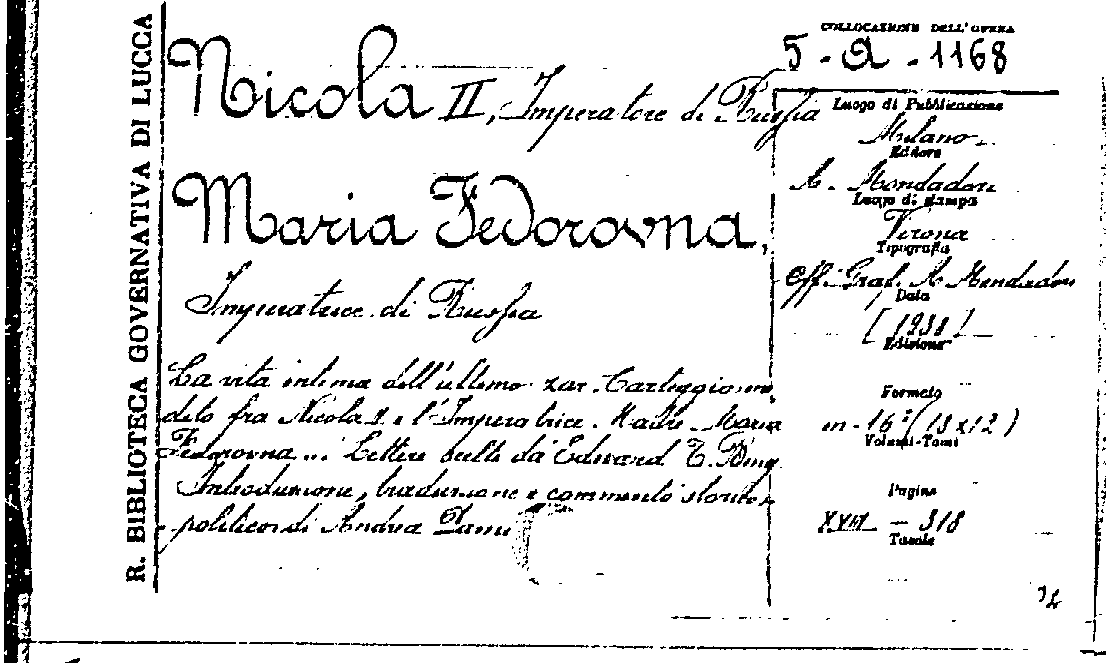 R. BIBLIOTECA GOVERNATIVA DI LUCCA
Nicola II, Imperatore di Russia
Maria Fedorovna,
Imperatrice di Russia
La vita intima dell'ultimo zar. Carteggio ine
dito fra Nicola 2. e l'Imperatrice Madre Maria
Fedorovna ... Lettere scelte da Edward T. Bing
Introduzione, traduzione e commento storico
politico di Andrea
COLLOCAZIONE DELL'OPERA
5 - a - 1168
Luogo di Pubblicazione
Milano
Editore
A. Mondadori
Luogo di stampa
Verona
Tipografia
Off. Graf. A. Mondadori
Data
[1938]
Edizione
Formato
in - 16° (18x12)
Volumi-Tomi
Pagine
XVIII - 318
Tavole